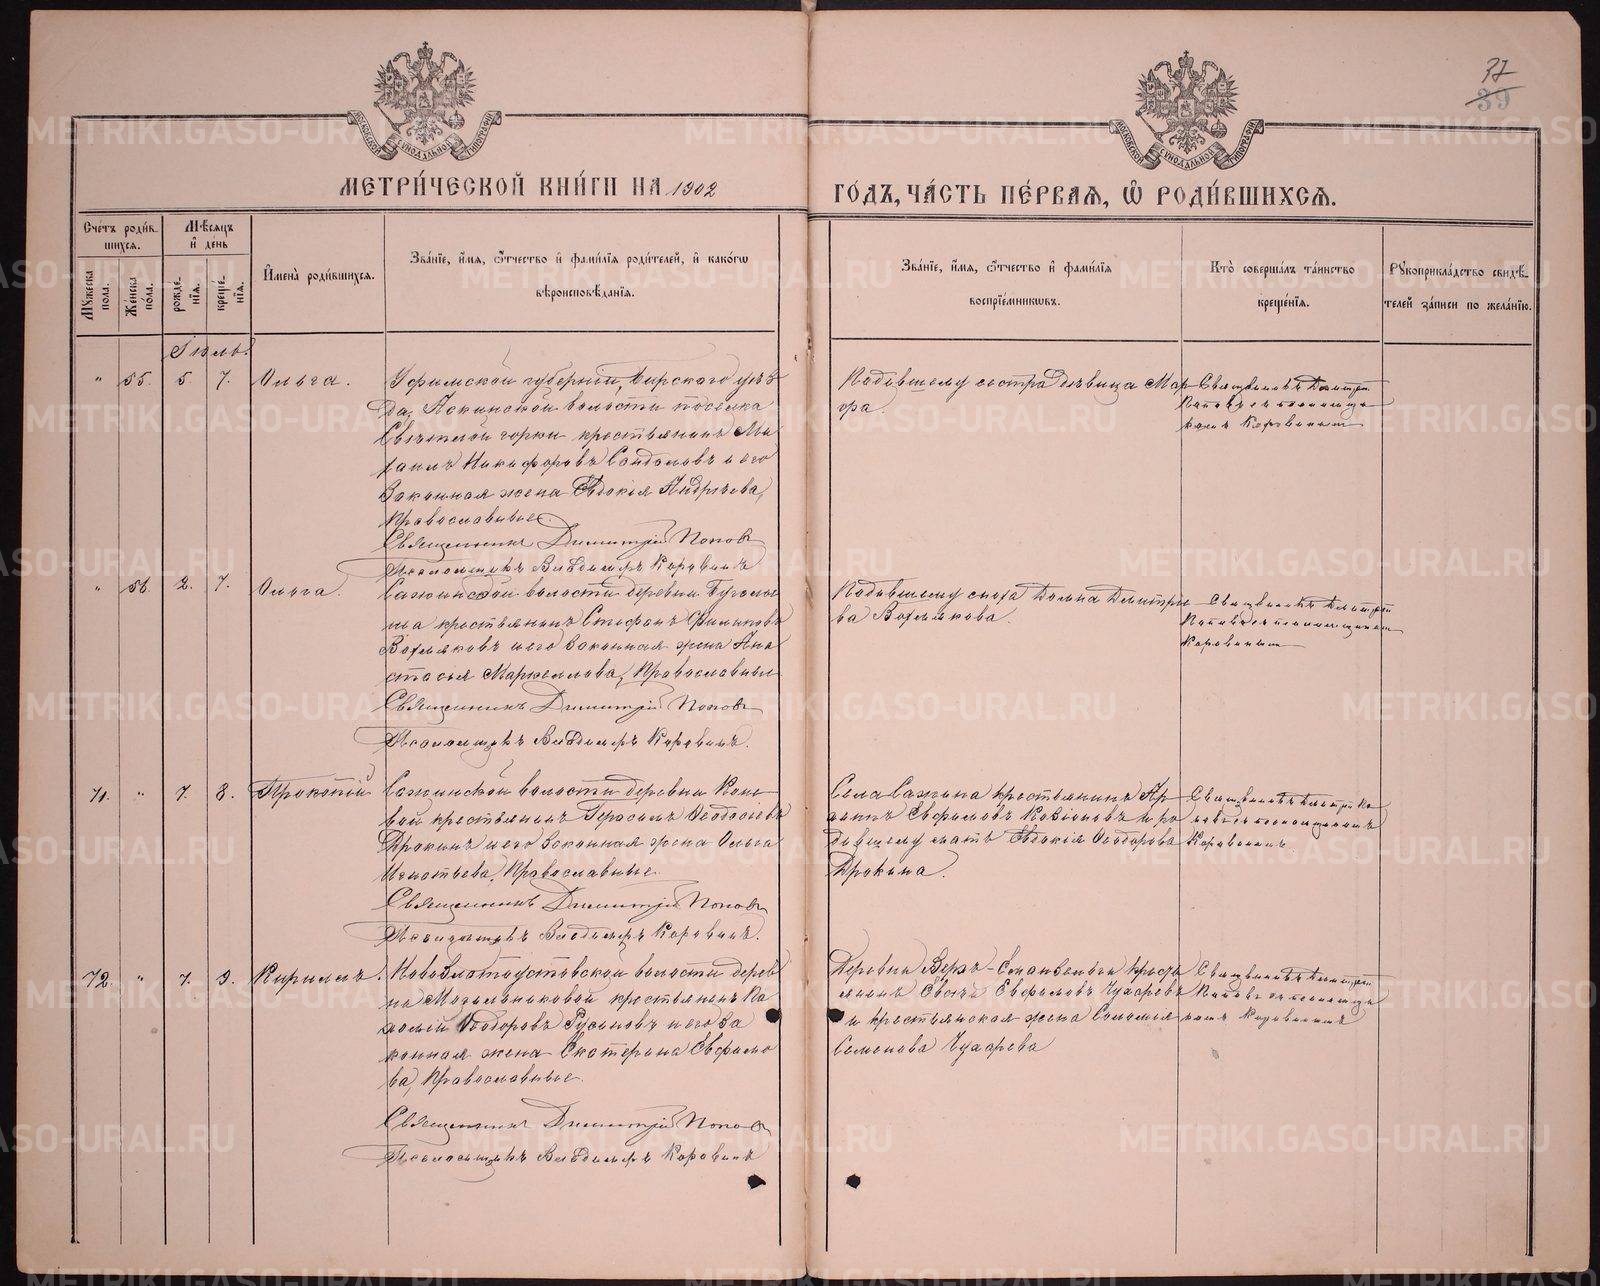 37
39
МОСКОВСКОЙ СѴНОДАЛЬНОЙ ТИПОГРАФІИ
МОСКОВСКОЙ СѴНОДАЛЬНОЙ ТИПОГРАФІИ
МЕТРИ́ЧЕСКОЙ КНИ́ГИ НА 1902
ГО́ДЪ, ЧА́СТЬ ПЕ́РВАѦ, Ѽ РОДИ́ВШИХСѦ.
Сче́тъ роди́вшихсѧ.
Мꙋ́жеска по́ла.
Же́нска по́ла.
Мѣ́сѧцъ и҆ де́нь
рожде́нїѧ.
креще́нїѧ.
И҆мена̀ роди́вшихсѧ.
Зва́нїе, и҆́мѧ, ѻ҆́тчество и҆ фами́лїѧ роди́телей, и҆ како́гѡ
вѣроисповѣ́данїѧ.
Зва́нїе, и҆́мѧ, ѻ҆́тчество и҆ фами́лїѧ
воспрїе́мникѡвъ.
Кто̀ соверша́лъ та́инство
креще́нїѧ.
Рꙋкоприкла́дство свидѣ́телей за́писи по жела́нїю.
Іюль.
" 55. 5. 7. Ольга.
Уфимской губерніи, Бирскаго уѣз
да, Аскинской волости поселка
Свѣтлой горки крестьянинъ Ми
хаилъ Никифоровъ и его
законная жена Евдокія Андреева,
православные.
Священникъ Димитрій Поповъ
Псаломщикъ Владиміръ Коровинъ
сестра дѣвица Мар
Священникъ Димитрій
Поповъ съ псаломщи
комъ Коровинымъ
" 56. 2. 7. Ольга.
Сажинской волости деревни
крестьянинъ Стефанъ Филиповъ
Вотяковъ и его законная жена Ана
стасья Маркеллова, православные
Священникъ Димитрій Поповъ
Псаломщикъ Владиміръ Коровинъ.
сноха Домна Димитріе
ва Вотякова.
Священникъ Димитрій
Поповъ съ псаломщикомъ
Коровинымъ
71. " 7. 8. Прокопій
Сажинской волости деревни Коне
вой крестьянинъ Герасимъ Ѳеодосіевъ
Дрокинъ и его законная жена Ольга
Игнатьева, православные.
Священникъ Димитрій Поповъ
Псаломщикъ Владиміръ Коровинъ.
Села Сажина крестьянинъ
Евфимовъ и ро
дившему мать Евдокія Ѳеодорова
Дрокина.
Священникъ Димитрій По
повъ съ псаломщикомъ
Коровинымъ
72. " 7. 9. Кириллъ.
Новозлатоустовской волости дерев
ни крестьянинъ Па
хомій Ѳеодоровъ Русиновъ и его за
конная жена Екатерина Евфимо
ва, православные.
Священникъ Димитрій Поповъ
Псаломщикъ Владиміръ Коровинъ
Деревни кресть
янинъ Евфимовъ Чухаревъ
и крестьянская жена Соломія
Семенова Чухарева
Священникъ Димитрій
Поповъ съ псаломщи
комъ Коровинымъ
METRIKI.GASO-URAL.RU